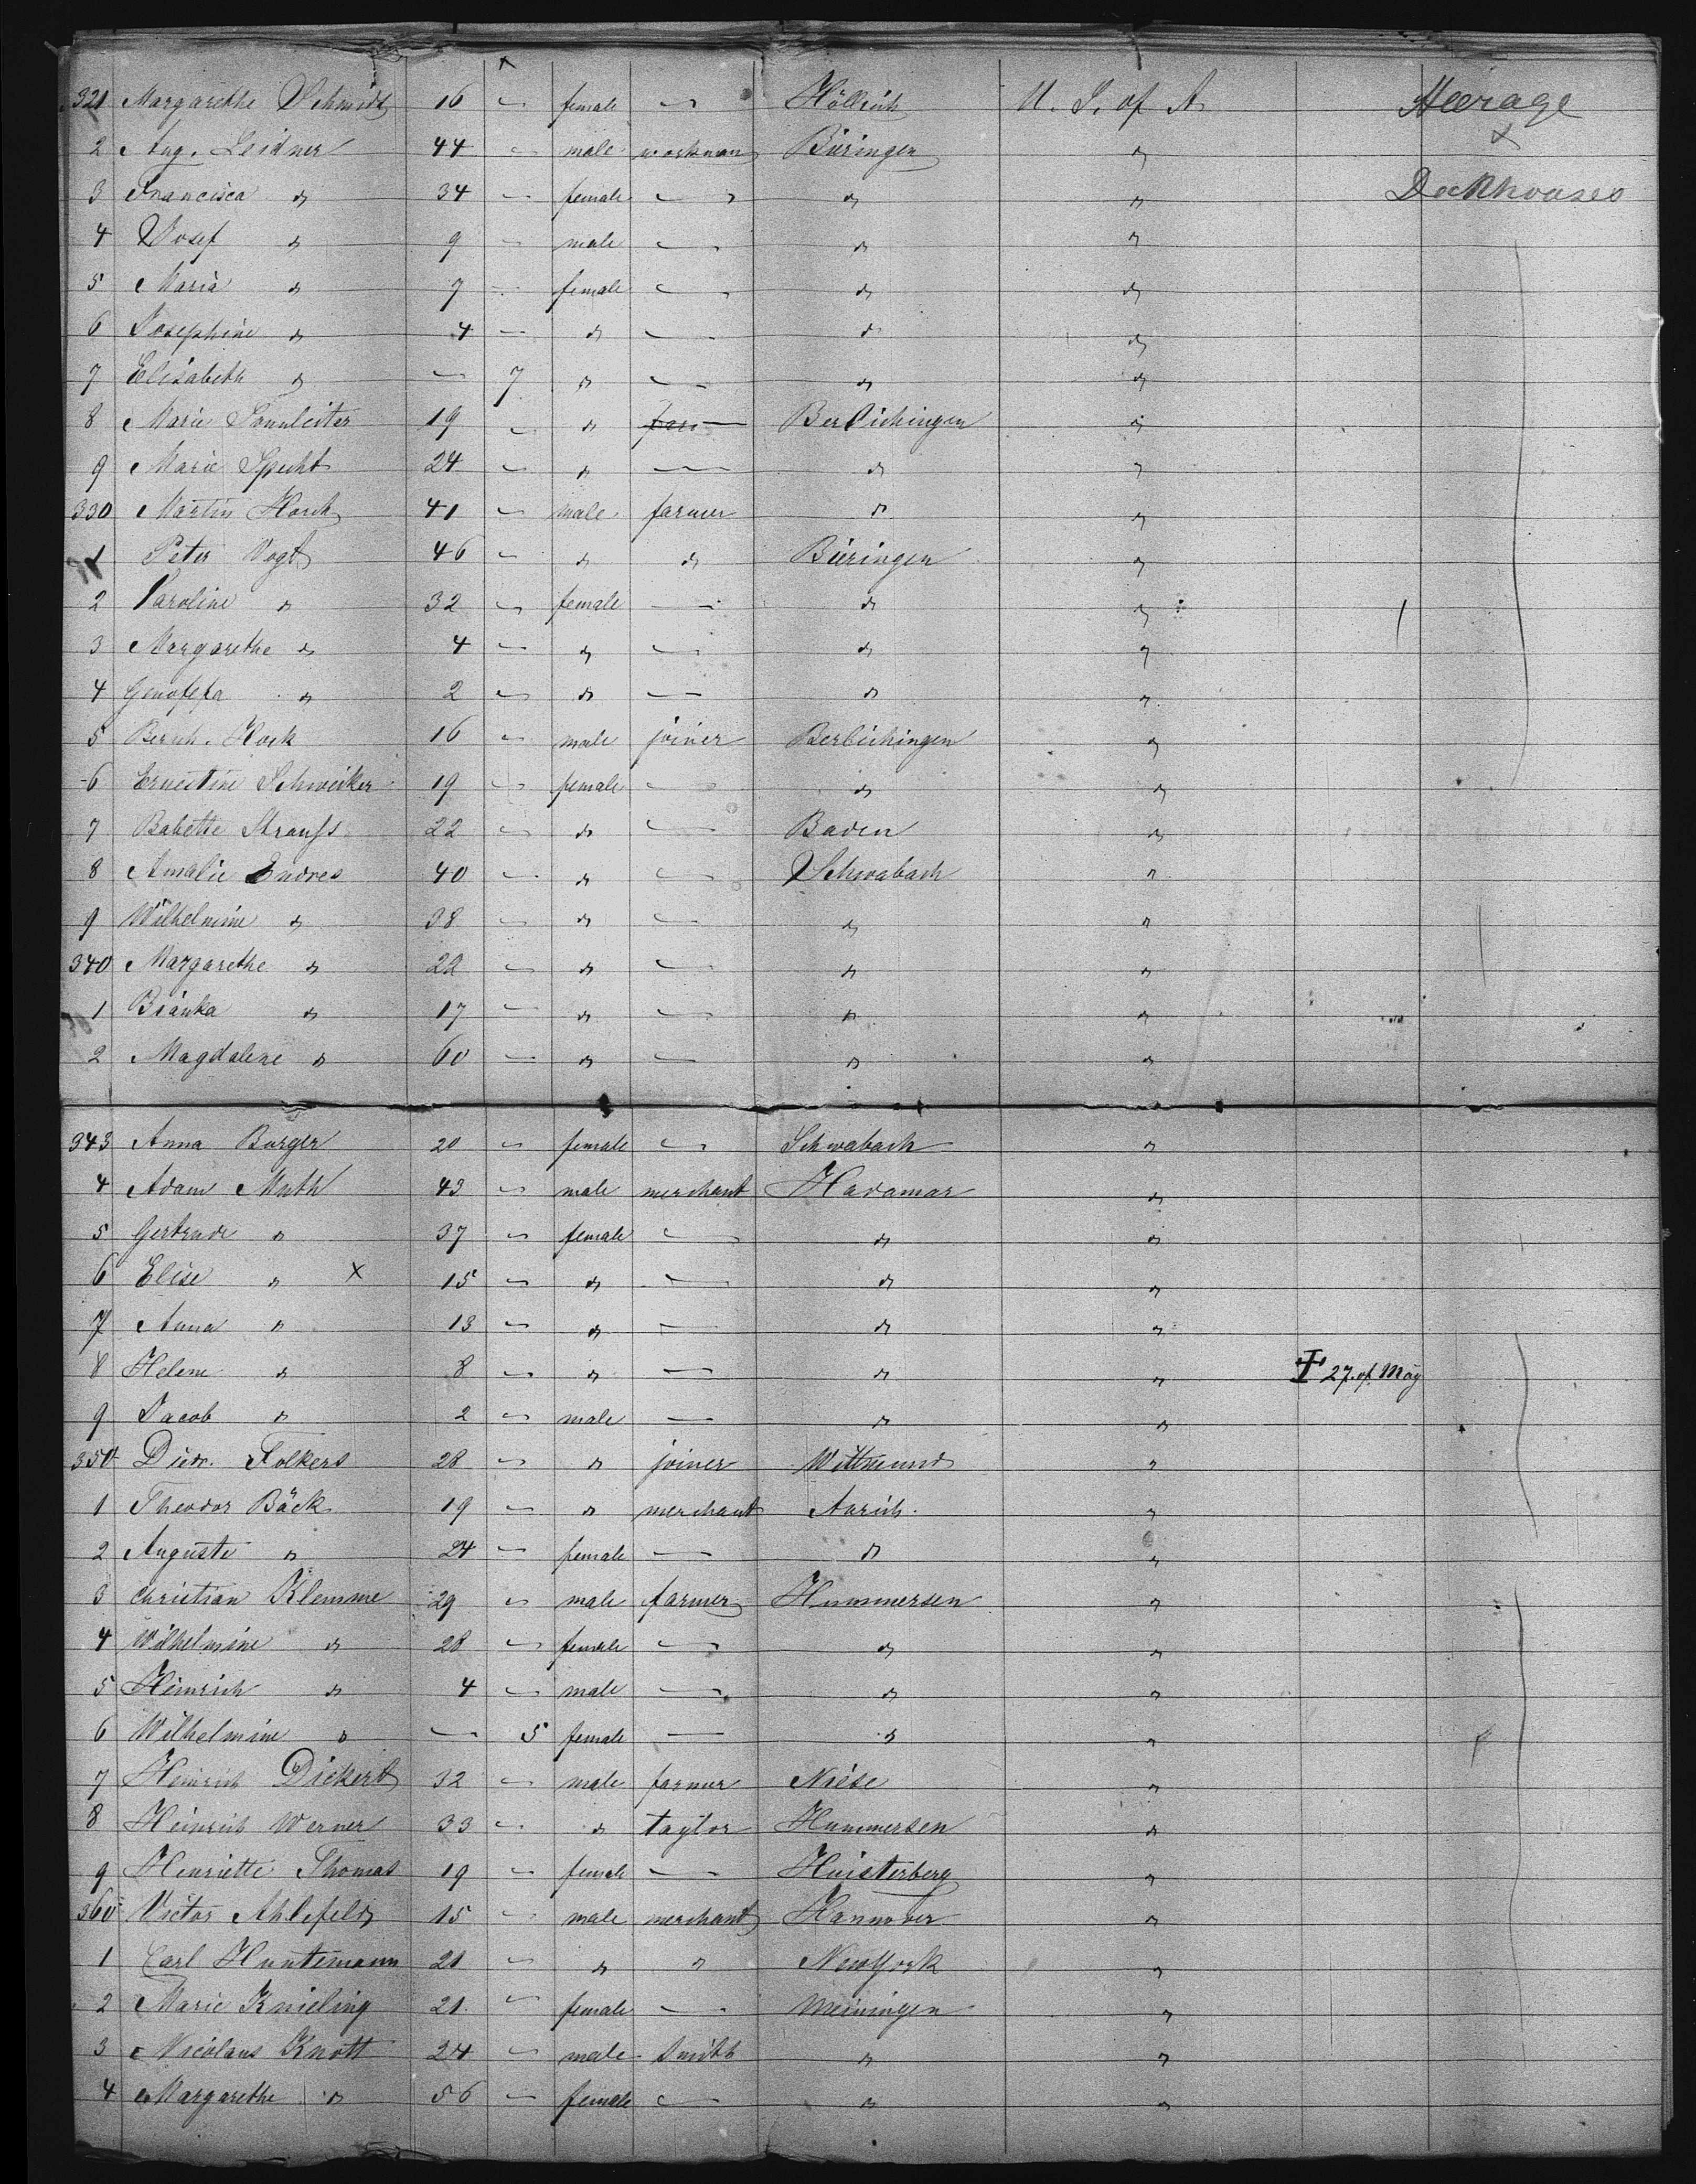 321 Margarethe Schmidt 16 — female — Höllrich U. S. of A. Steerage
2 Aug. Leidner 44 — male workman Bieringen " &
3 Francisca " 34 — female — " " Deckhouses
4 Josef " 9 — male — " "
5 Maria " 7 — female — " "
6 Josephine " 4 — " — " "
7 Elisabeth " — 7 " — " "
8 Marie Sonnleiter 19 — " Berlichingen "
9 Marie Specht 24 — " — " "
330 Martin Horch 41 — male farmer " "
1 Peter Vogt 46 — " " Bieringen "
2 Caroline " 32 — female — " "
3 Margarethe " 4 — " — " "
4 Genofefa " 2 — " — " "
5 Bernh. Hock 16 — male joiner Berlichingen "
6 Ernestine Schweiker 19 — female — " "
7 Babette Strauss 22 — " — Baden "
8 Amalie Endres 40 — " — Schwabach "
9 Wilhelmine " 38 — " — " "
340 Margarethe " 22 — " — " "
1 Bianka " 17 — " — " "
2 Magdalene " 60 — " — " "
343 Anna Burger 20 — female — Schwabach "
4 Adam Muth 43 — male merchant Hadamar "
5 Gertrude " 37 — female — " "
6 Elise " x 15 — " — " "
7 Anna " 13 — " — " "
8 Helene " 8 — " — " " † 27. of May
9 Jacob " 2 — male — " "
350 Diedr. Folkers 28 — " joiner Wittmund "
1 Theodor Bäck 19 — " merchant Aurich "
2 Auguste " 24 — female — " "
3 Christian Klemme 29 — male farmer Hummersen "
4 Wilhelmine " 28 — female — " "
5 Heinrich " 4 — male — " "
6 Wilhelmine " — 5 female — " "
7 Heinrich Dickert 32 — male farmer Niese "
8 Heinrich Werner 33 — " taylor Hummersen "
9 Henriette Thomas 19 — female — "
360 Victor Ahlefeld 15 — male merchant Hannover "
1 Carl Huntemann 21 — " " NewYork "
2 Marie Knieling 21 — female — Meiningen "
3 Nicolaus Knott 24 — male Smith " "
4 Margarethe " 56 — female — " "